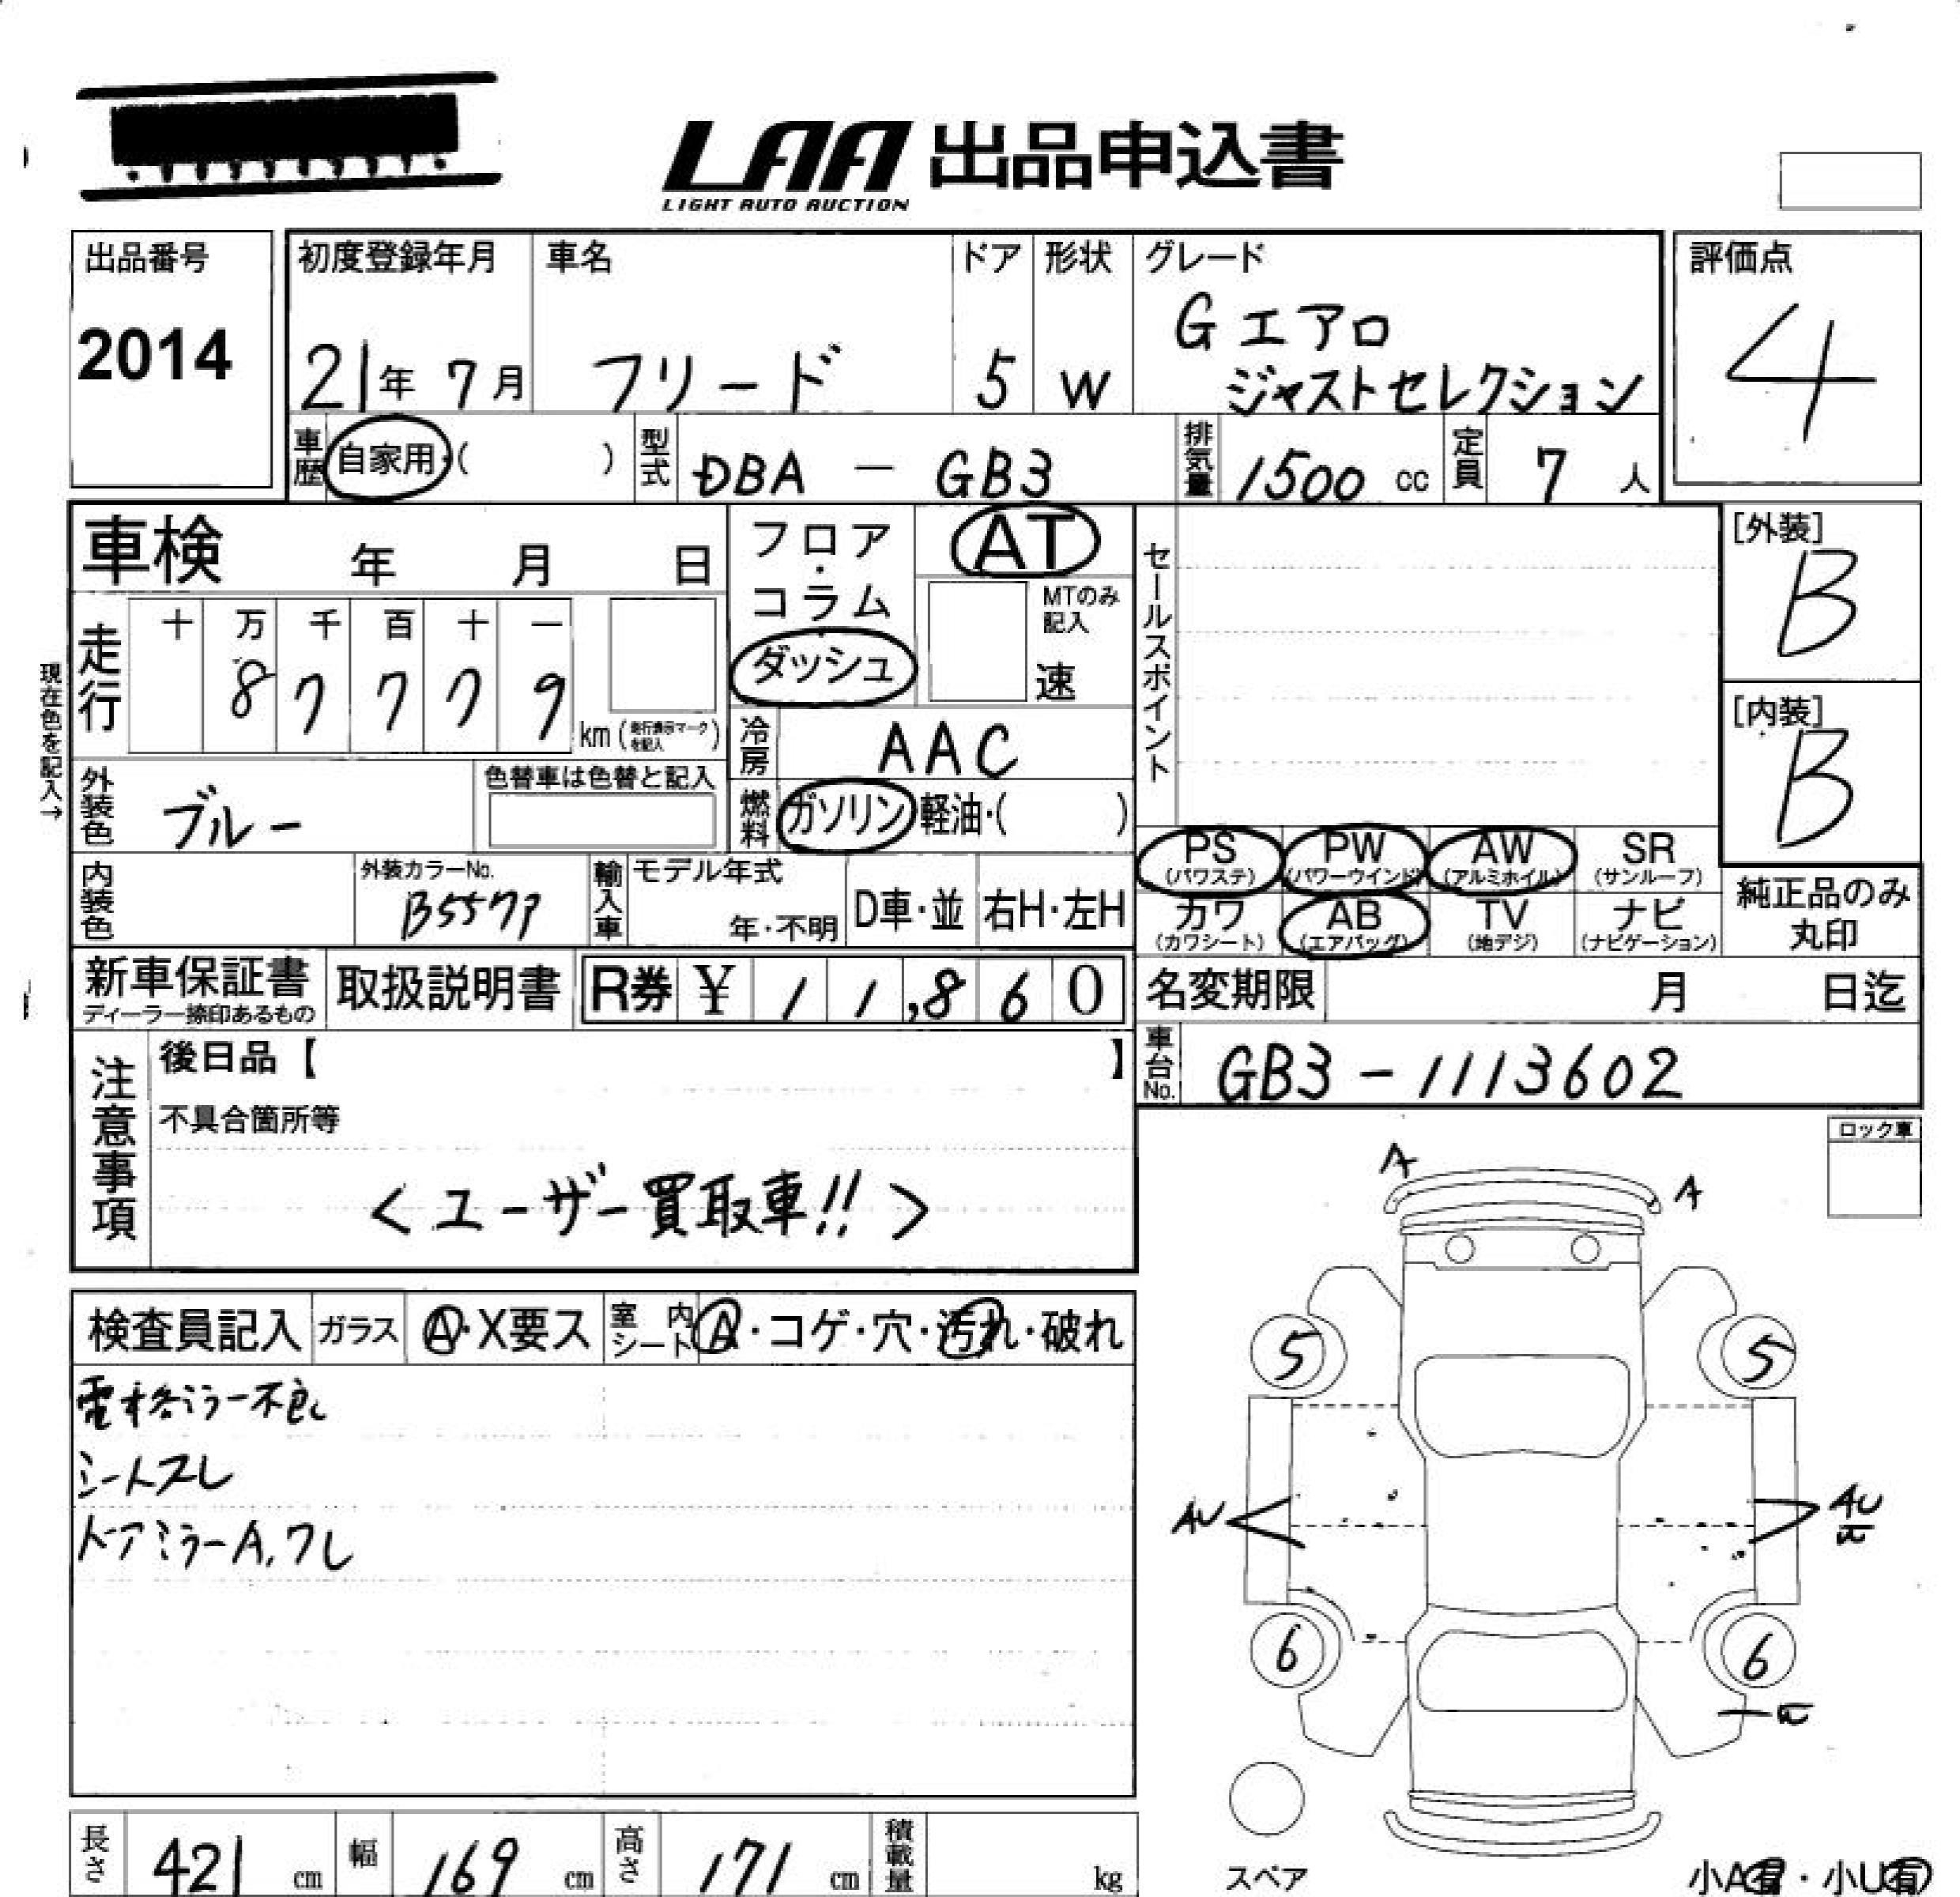 LAA 出品申込書
LIGHT AUTO AUCTION
出品番号
2014
初度登録年月
21年 7月
車名
フリード
ドア
5
形状
W
グレード
Gエアロ
ジャストセレクション
評価点
4
車歴 自家用・( )
型式 DBA - GB3
排気量 1500 cc
定員 7 人
車検 年 月 日
フロア・コラム
ダッシュ
AT
MTのみ記入
速
セールスポイント
[外装]
B
[内装]
B
現在色を記入→
走行
十 万 千 百 十 一
8 7 7 7 9
km (走行表示マークを記入)
冷房 AAC
外装色 ブルー
色替車は色替と記入
燃料 ガソリン・軽油・( )
PS (パワステ)
PW (パワーウインド)
AW (アルミホイル)
SR (サンルーフ)
カワ (カワシート)
AB (エアバッグ)
TV (地デジ)
ナビ (ナビゲーション)
純正品のみ
丸印
内装色
外装カラーNo.
B557P
輸入車
モデル年式
年・不明
D車・並
右H・左H
新車保証書
ディーラー捺印あるもの
取扱説明書
R券 ¥ 11,860
名変期限 月 日迄
車台No. GB3-1113602
注意事項
後日品【 】
不具合箇所等
<ユーザー買取車!!>
ロック車
検査員記入
ガラス
A・X要ス
室内シート
A・コゲ・穴・汚れ・破れ
電格ミラー不良
シートスレ
ドアミラーA,ワレ
A
A
5
5
AU
AU
6
6
スペア
小A有・小U有
長さ 421 cm
幅 169 cm
高さ 171 cm
積載量 kg